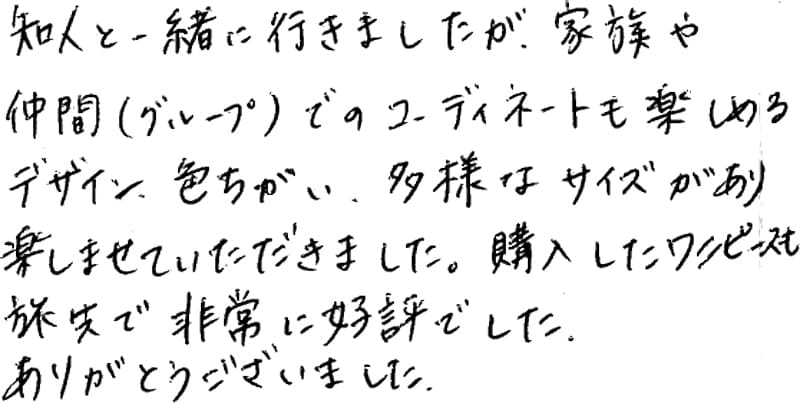 知人と一緒に行きましたが、家族や
仲間(グループ)でのコーディネートも楽しめる
デザイン、色ちがい、多様なサイズがあり
楽しませていただきました。購入したワンピースも
旅先で非常に好評でした。
ありがとうございました。